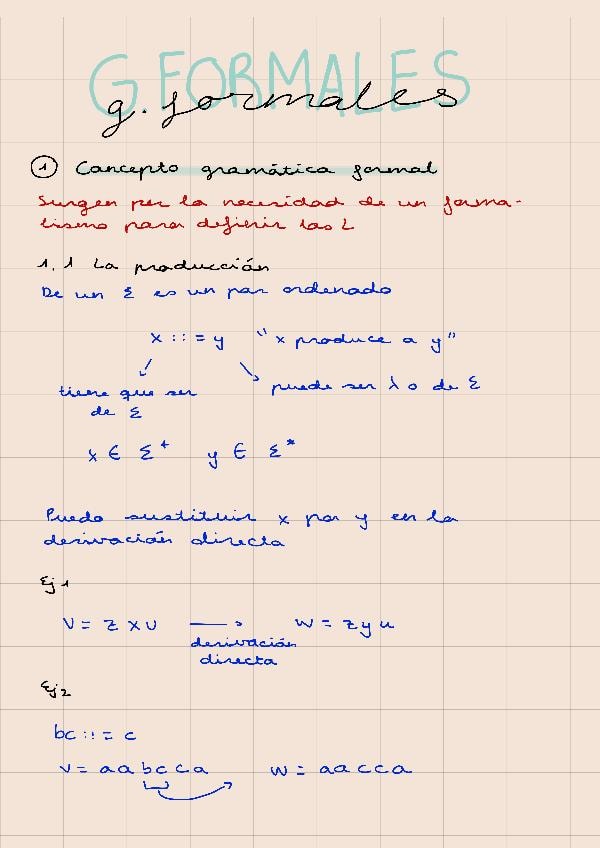 G.FORMALES
g. formales
1 Concepto gramática formal
Surgen por la necesidad de un forma-
lismo para definir las L
1.1 La producción
De un Σ es un par ordenado
x ::= y "x produce a y"
tiene que ser puede ser λ o de Σ
de Σ
x ∈ Σ⁺ y ∈ Σ*
Puedo sustituir x por y en la
derivación directa
Ej 1
V = z x u → w = z y u
derivación
directa
Ej 2
bc ::= c
v = aabcca w = aacca